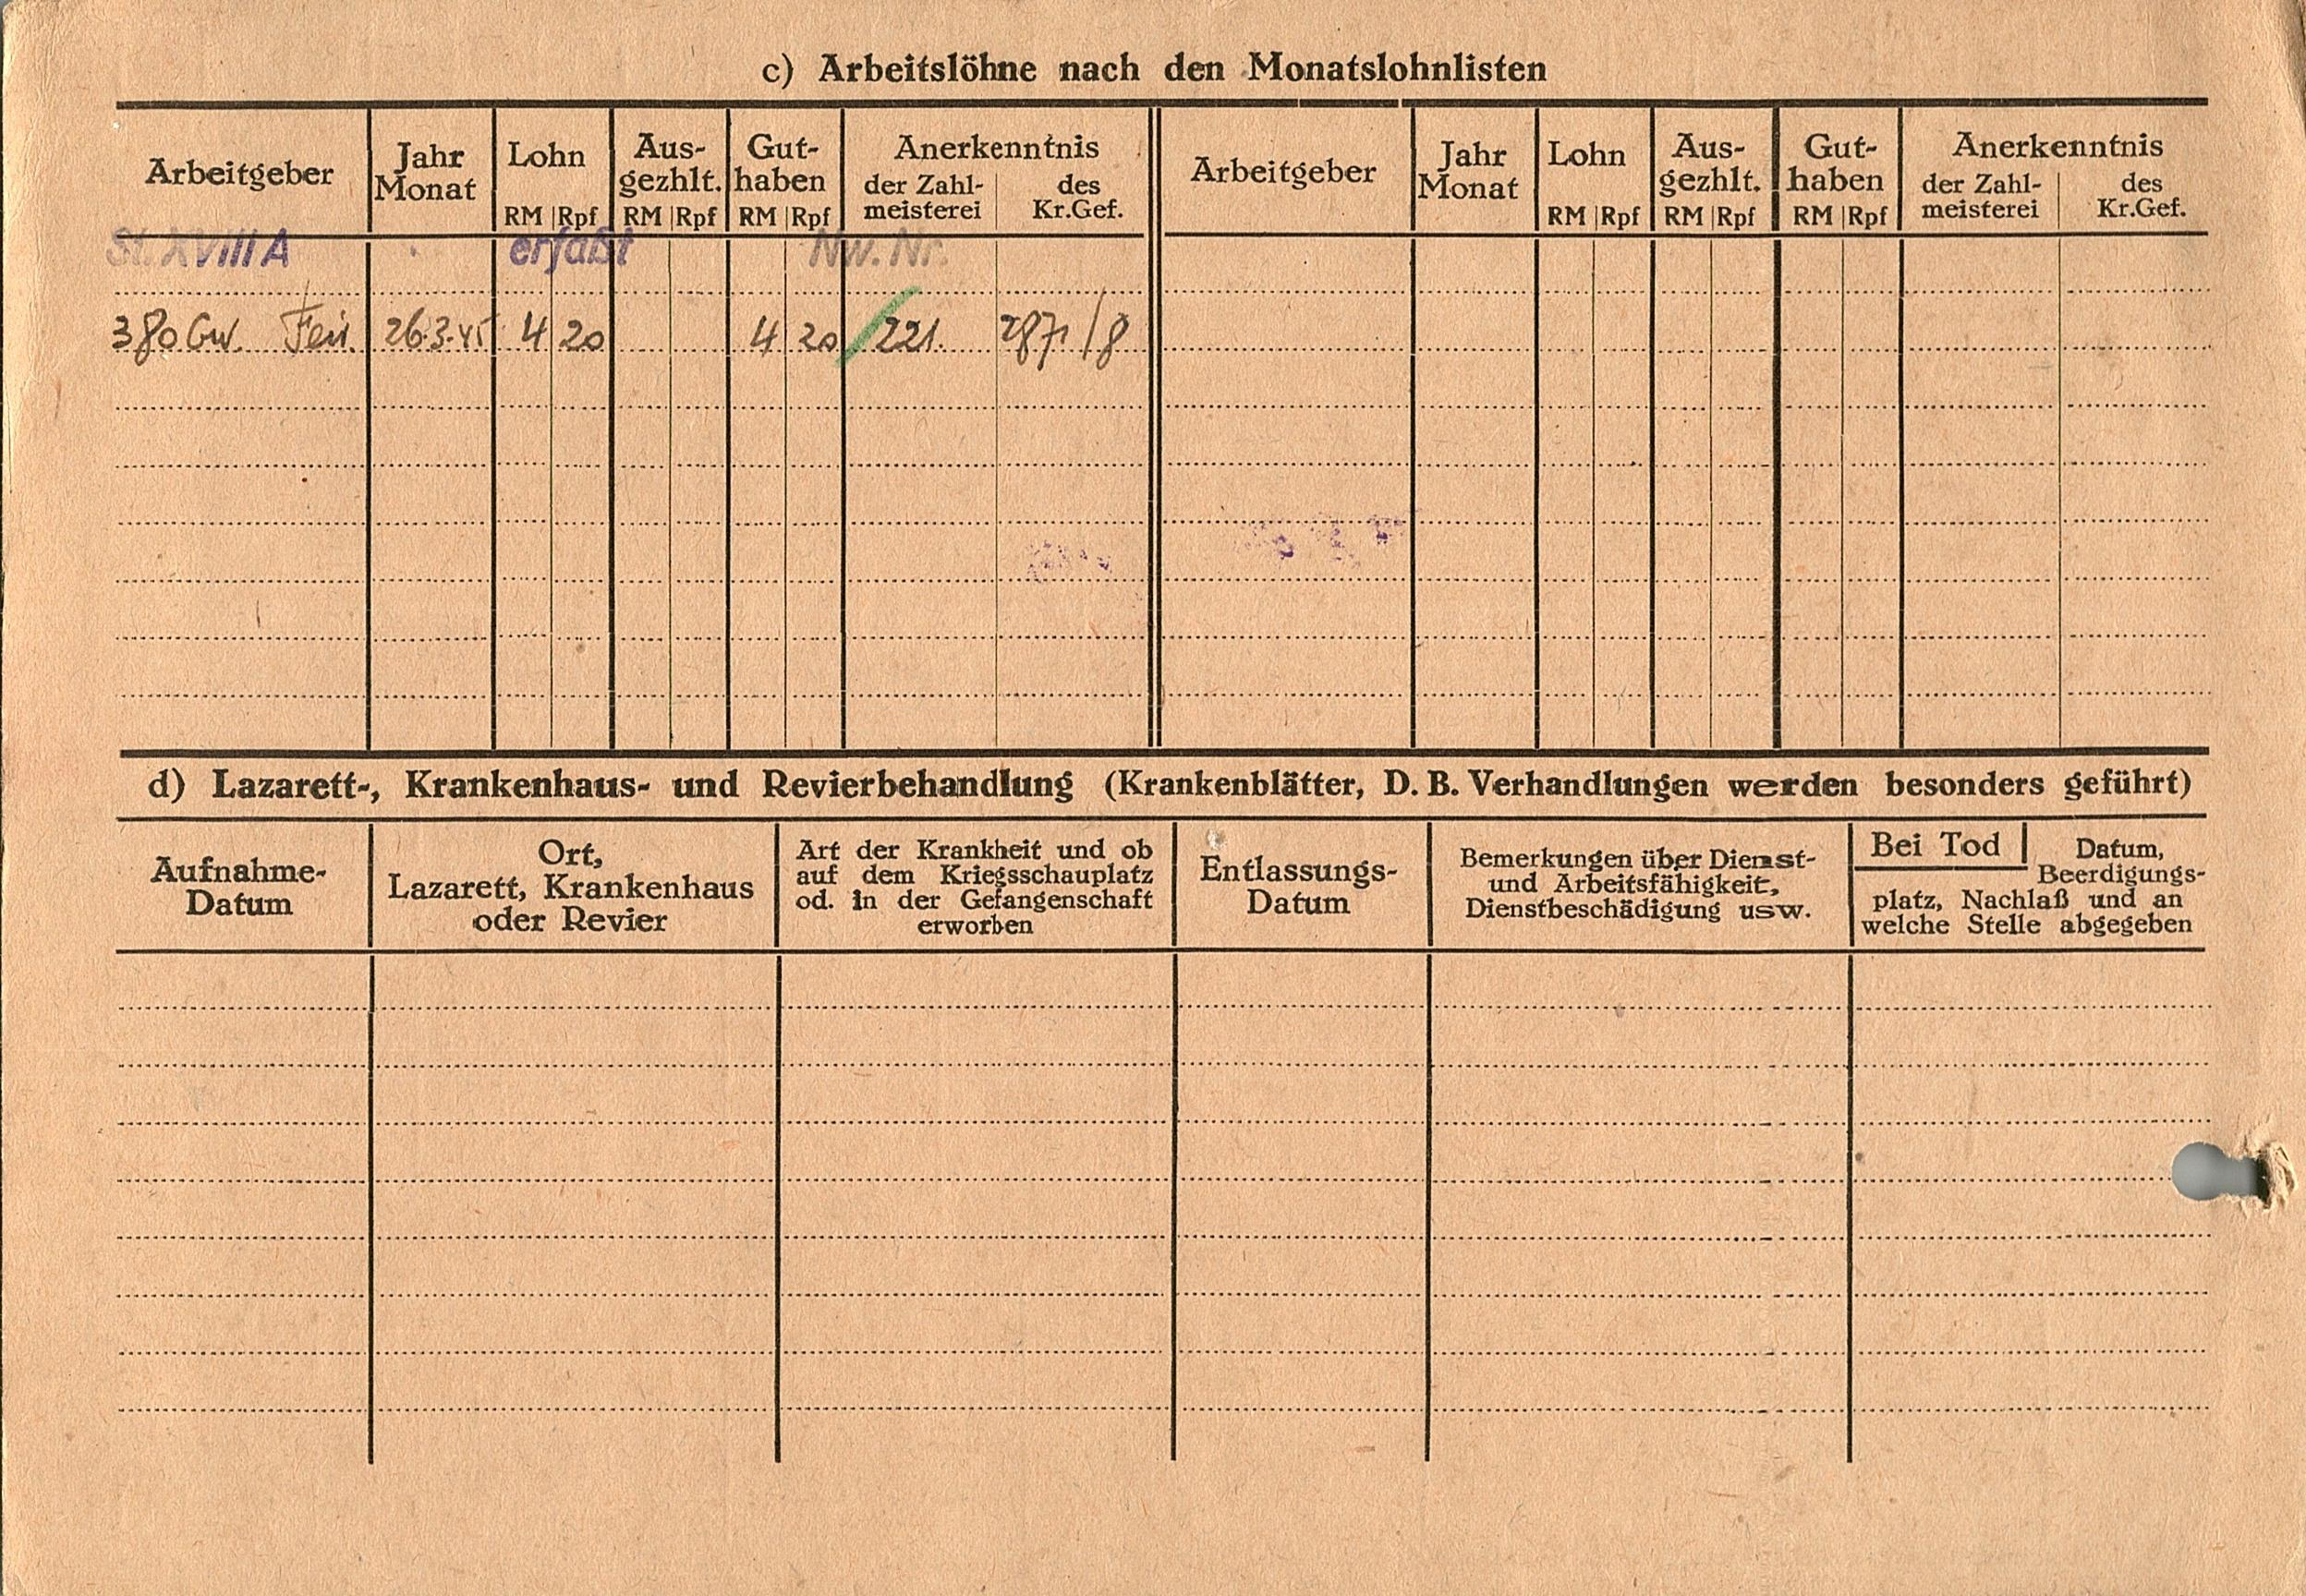 c) Arbeitslöhne nach den Monatslohnlisten
Arbeitgeber Jahr Monat Lohn RM Rpf Aus-gezhlt. RM Rpf Gut-haben RM Rpf Anerkenntnis der Zahl-meisterei des Kr.Gef. Arbeitgeber Jahr Monat Lohn RM Rpf Aus-gezhlt. RM Rpf Gut-haben RM Rpf Anerkenntnis der Zahl-meisterei des Kr.Gef.
St. XVIII A erfaßt Nw. Nr.
380 Gw. 26.3.45 4 20 4 20 221. 287/8
d) Lazarett-, Krankenhaus- und Revierbehandlung (Krankenblätter, D. B. Verhandlungen werden besonders geführt)
Aufnahme-
Datum
Ort,
Lazarett, Krankenhaus
oder Revier
Art der Krankheit und ob
auf dem Kriegsschauplatz
od. in der Gefangenschaft
erworben
Entlassungs-
Datum
Bemerkungen über Dienst-
und Arbeitsfähigkeit,
Dienstbeschädigung usw.
Bei Tod Datum,
Beerdigungs-
platz, Nachlaß und an
welche Stelle abgegeben